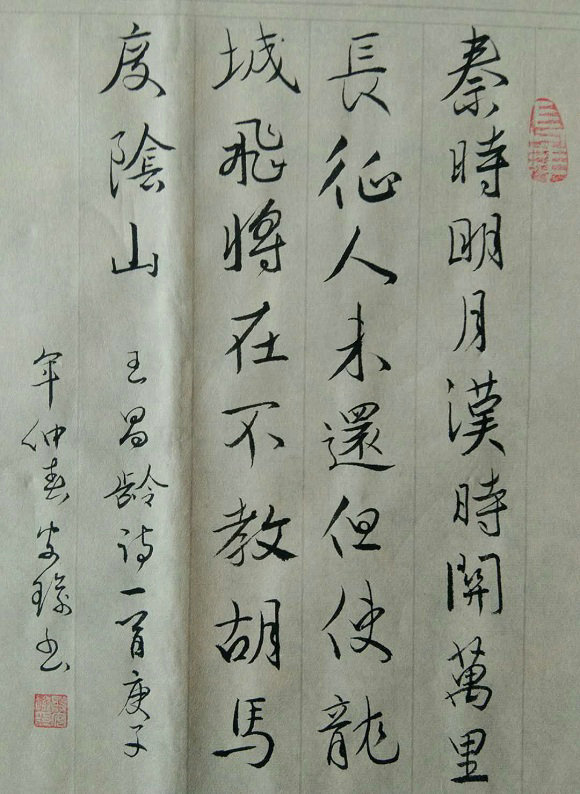 秦時明月漢時關萬里
長征人未還但使龍
城飛將在不教胡馬
度陰山 王昌齡诗一首庚子
年仲春书